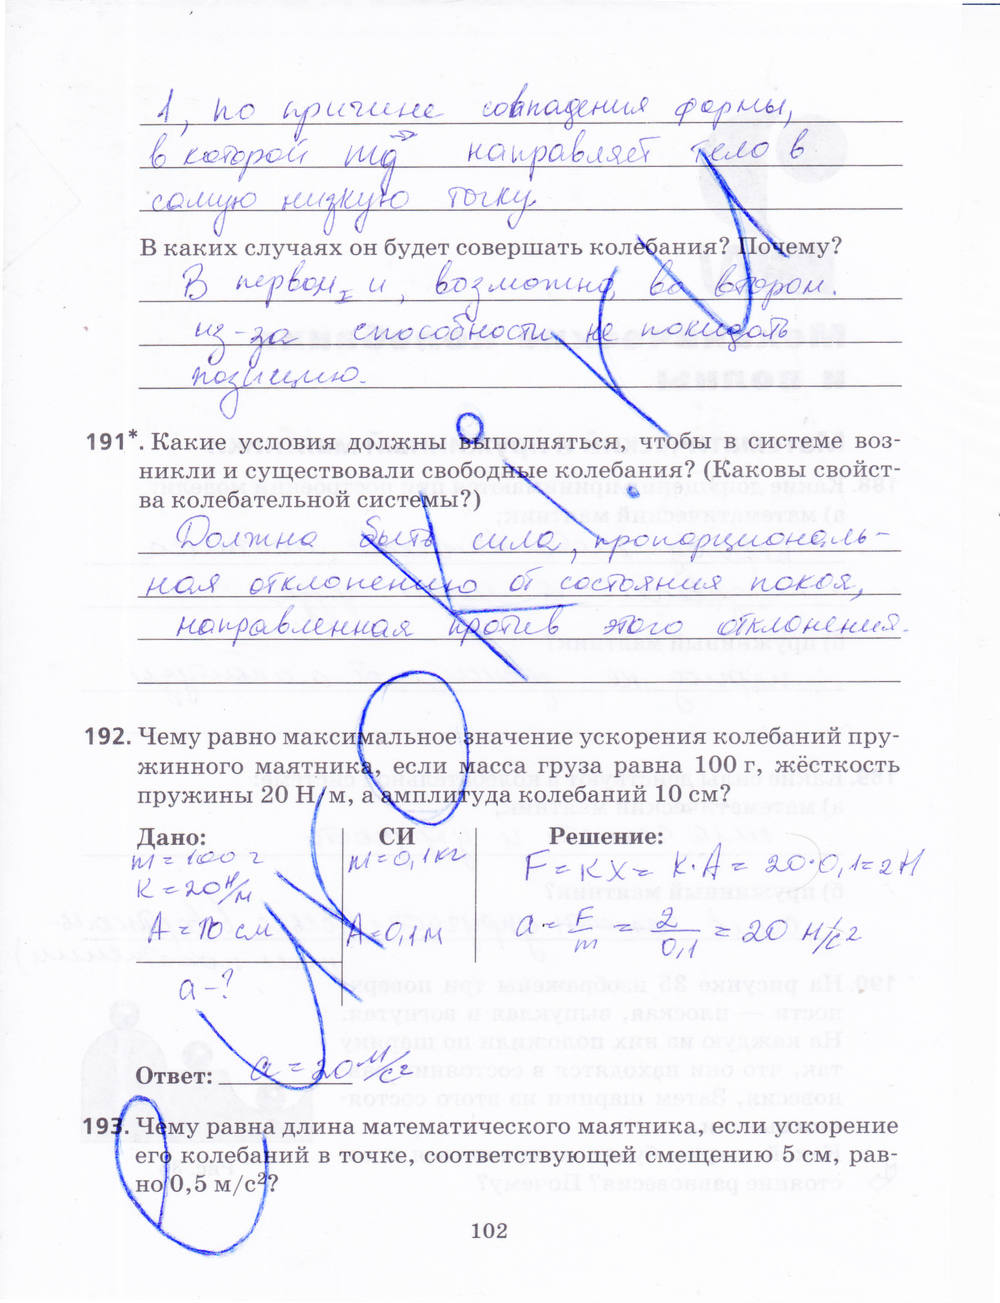 1, по причине совпадения формы,
в которой mg направляет тело в
самую низкую точку
В каких случаях он будет совершать колебания? Почему?
В первом и, возможно, во втором.
из-за способности не покидать
позицию.
191*. Какие условия должны выполняться, чтобы в системе воз-
никли и существовали свободные колебания? (Каковы свойст-
ва колебательной системы?)
Должна быть сила, пропорциональ-
ная отклонению от состояния покоя,
направленная против этого отклонения.
192. Чему равно максимальное значение ускорения колебаний пру-
жинного маятника, если масса груза равна 100 г, жёсткость
пружины 20 Н/м, а амплитуда колебаний 10 см?
Дано: СИ Решение:
m = 100 г m = 0,1 кг F = kx = k·A = 20·0,1 = 2 Н
k = 20 Н/м
A = 10 см A = 0,1 м a = F/m = 2/0,1 = 20 м/с²
a - ?
Ответ: a = 20 м/с²
193. Чему равна длина математического маятника, если ускорение
его колебаний в точке, соответствующей смещению 5 см, рав-
но 0,5 м/с²?
102